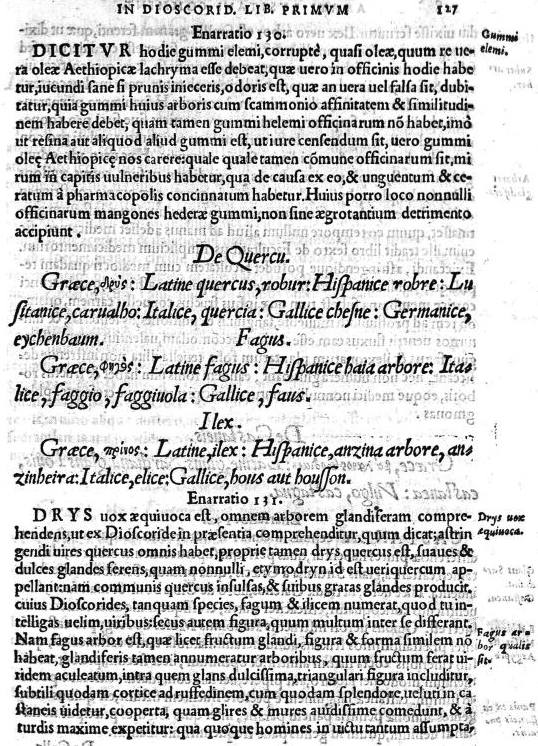 IN DIOSCORID. LIB. PRIMVM 127
Enarratio 130.
DICITVR hodie gummi elemi, corruptè, quasi oleæ, quum re ue-
ra oleæ Aethiopicæ lachryma esse debeat, quæ uero in officinis hodie habe
tur, iucundi sane si prunis inieceris, odoris est, quæ an uera uel falsa sit, dubi-
tatur, quia gummi huius arboris cum scammonio affinitatem & similitudi-
nem habere debet, quam tamen gummi helemi officinarum nõ habet, imò
ut resina aut aliquod aliud gummi est, ut iure censendum sit, uero gummi
oleę Aethiopicę nos carere: quale quale tamen cõmune officinarum sit, mi
rum ĩn capitis uulneribus habetur, qua de causa ex eo, & unguentum & ce-
ratum à pharmacopolis concinnatum habetur. Huius porro loco nonnulli
officinarum mangones hederæ gummi, non sine ægrotantium detrimento
accipiunt.
Gummi
elemi.
De Quercu.
Græce, δρῦς: Latine quercus, robur: Hispanice robre: Lu
sitanice, carualho: Italice, quercia: Gallice chesne: Germanice,
eychenbaum. Fagus.
Græce, Φηγὸς: Latine fagus: Hispanice haia arbore: Ita-
lice, faggio, faggiuola: Gallice, faus.
Ilex.
Græce, πρίνος: Latine, ilex: Hispanice, anzina arbore, an-
zinheira: Italice, elice: Gallice, hous aut housson.
Enarratio 131.
DRYS uox æquiuoca est, omnem arborem glandiferam compre-
hendens, ut ex Dioscoride in præsentia comprehenditur, quum dicat, astrin
gendi uires quercus omnis habet, proprie tamen drys, quercus est, suaues &
dulces glandes ferens, quam nonnulli, etymodryn id est ueriquercum ap-
pellant: nam communis quercus insulsas, & suibus gratas glandes producit,
cuius Dioscorides, tanquam species, fagum & ilicem numerat, quod tu in-
telligas uelim, uiribus: secus autem figura, quum multum inter se differant.
Nam fagus arbor est, quæ licet fructum glandi, figura & forma similem nõ
habeat, glandiferis tamen annumeratur arboribus, quum fructum ferat ui-
ridem aculeatum, intra quem glans dulcissima, triangulari figura includitur,
subtili quodam cortice ad ruffedinem, cum quodam splendore, ueluti in ca
staneis uidetur, cooperta, quam glires & mures auidissime comedunt, & à
turdis maxime expetitur: qua quoque homines in uictu tantum assumpta,
Drys uox
æquiuoca.
Fagus ar-
bor qualis
sit.